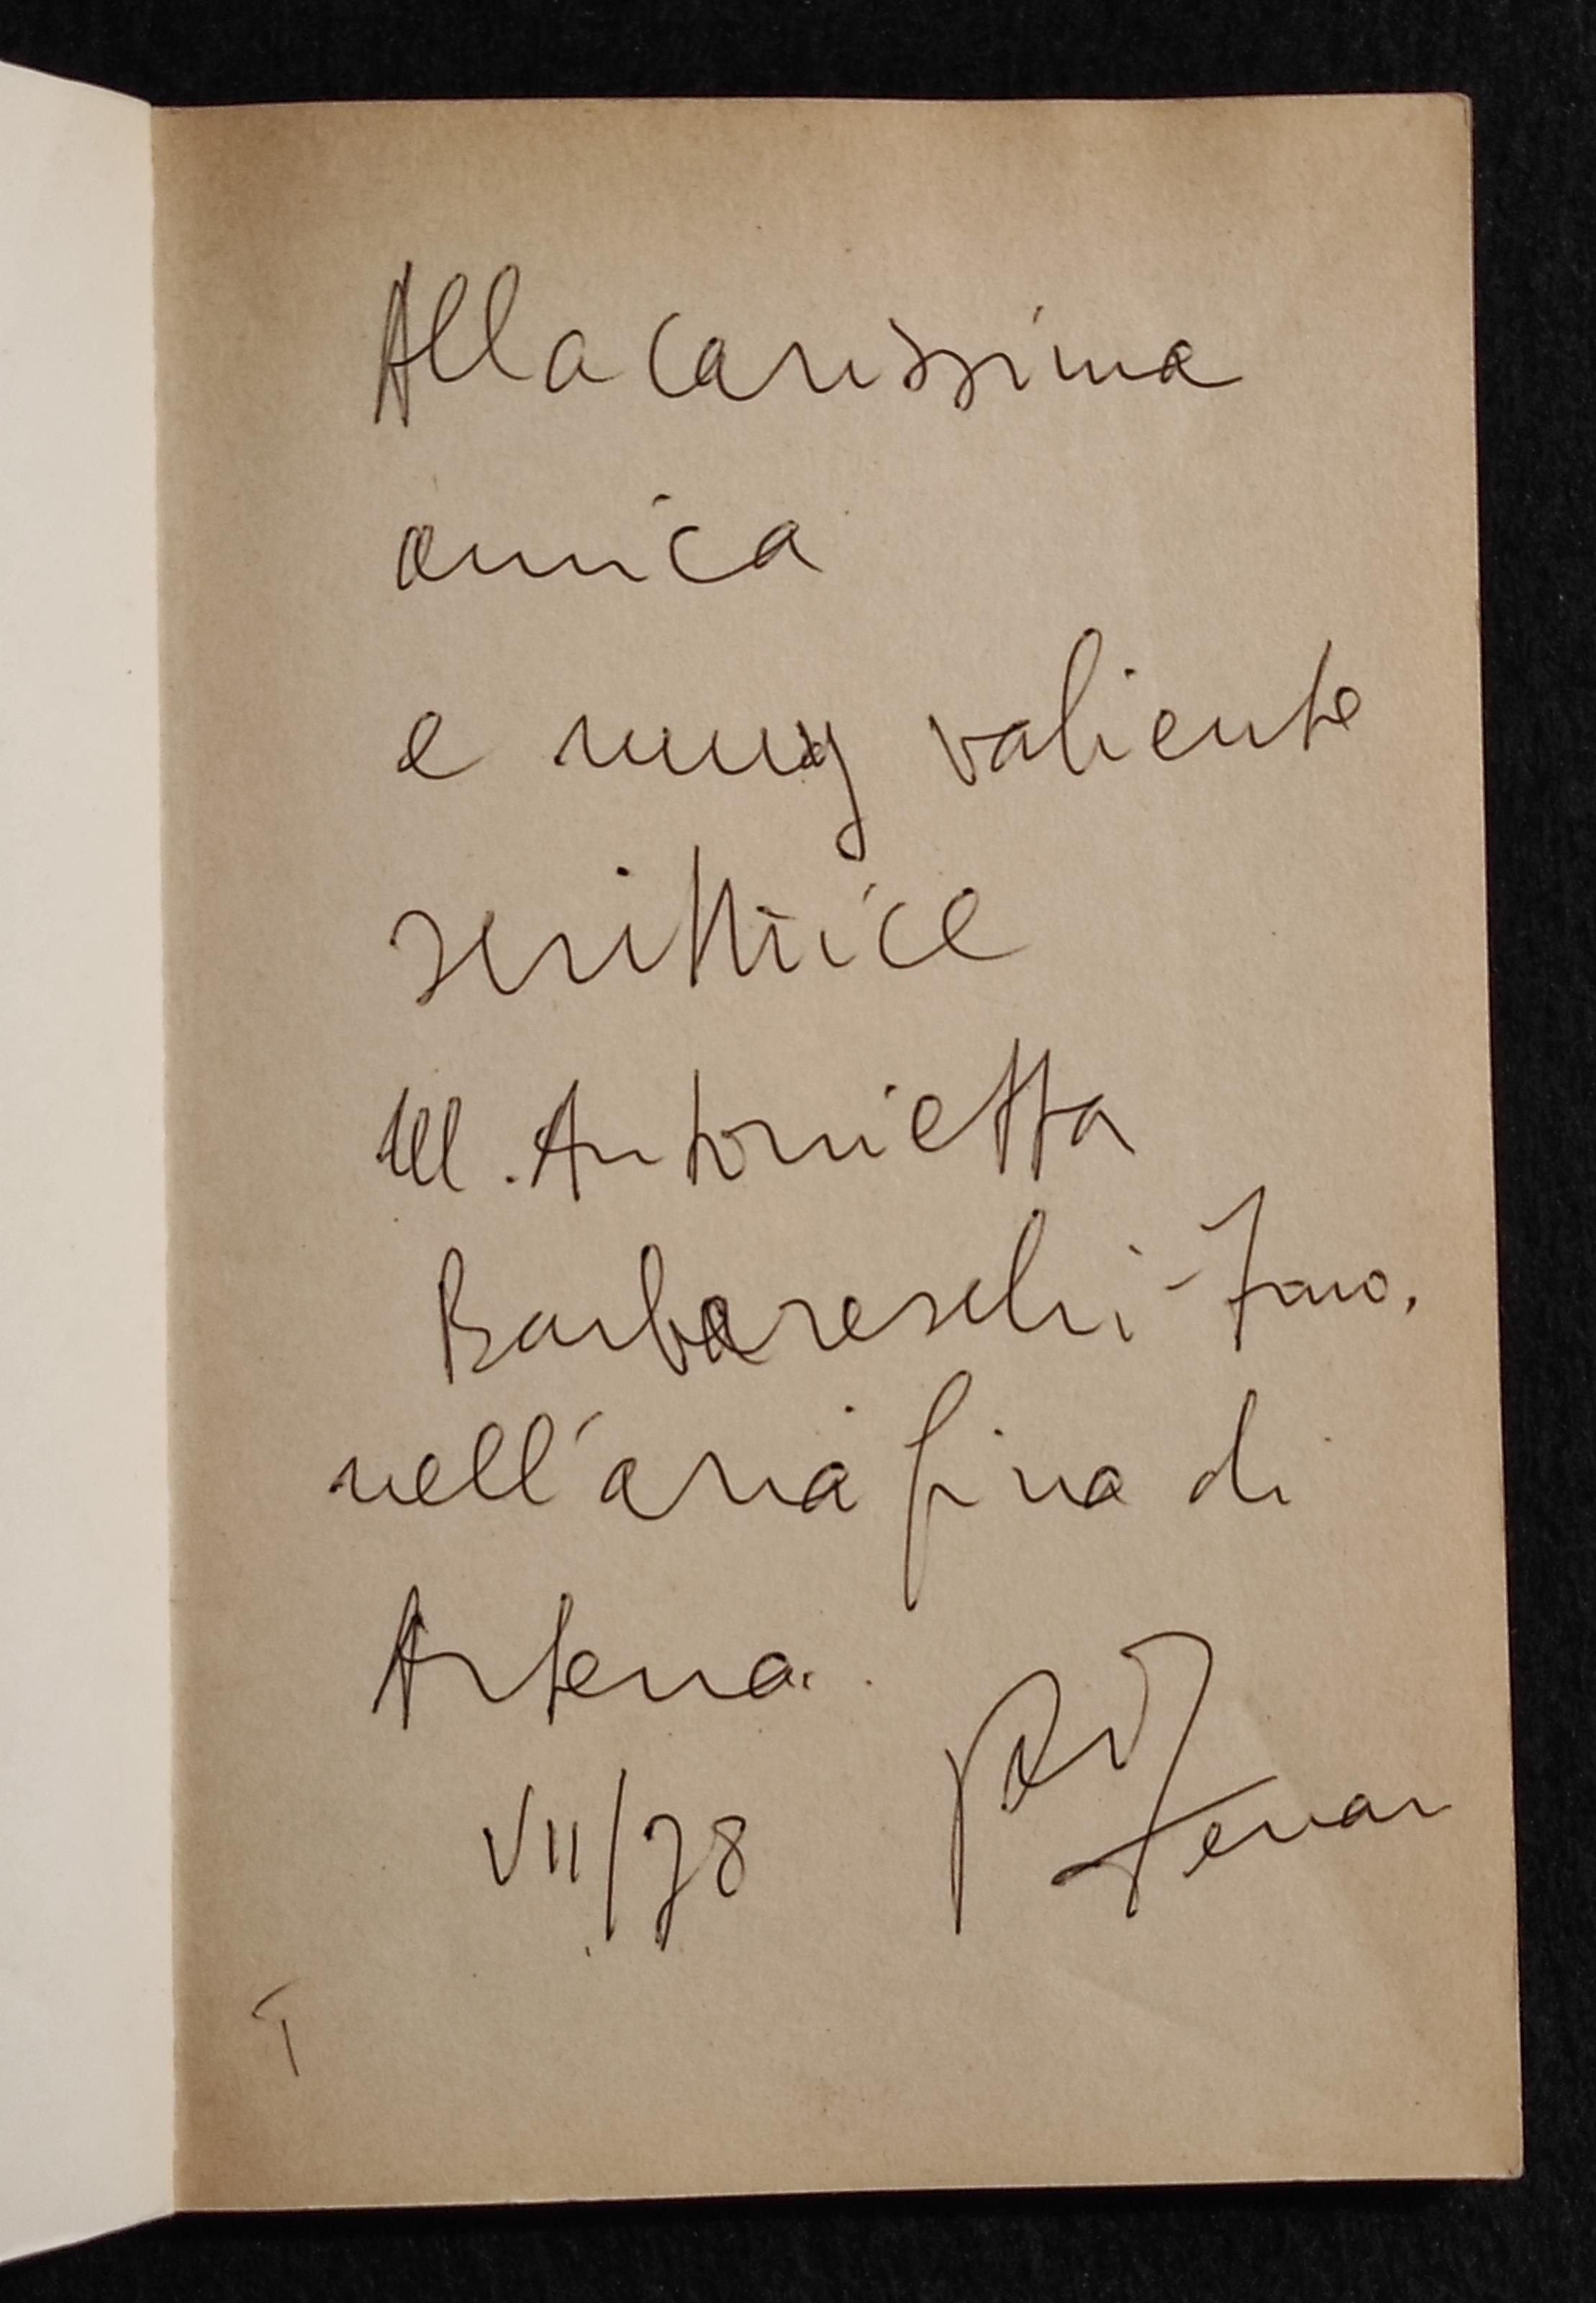 Alla carissima
amica
e muy valiente
scrittrice
M. Antonietta
Barbareschi-
nell'aria fina di
Artena.
VII/78